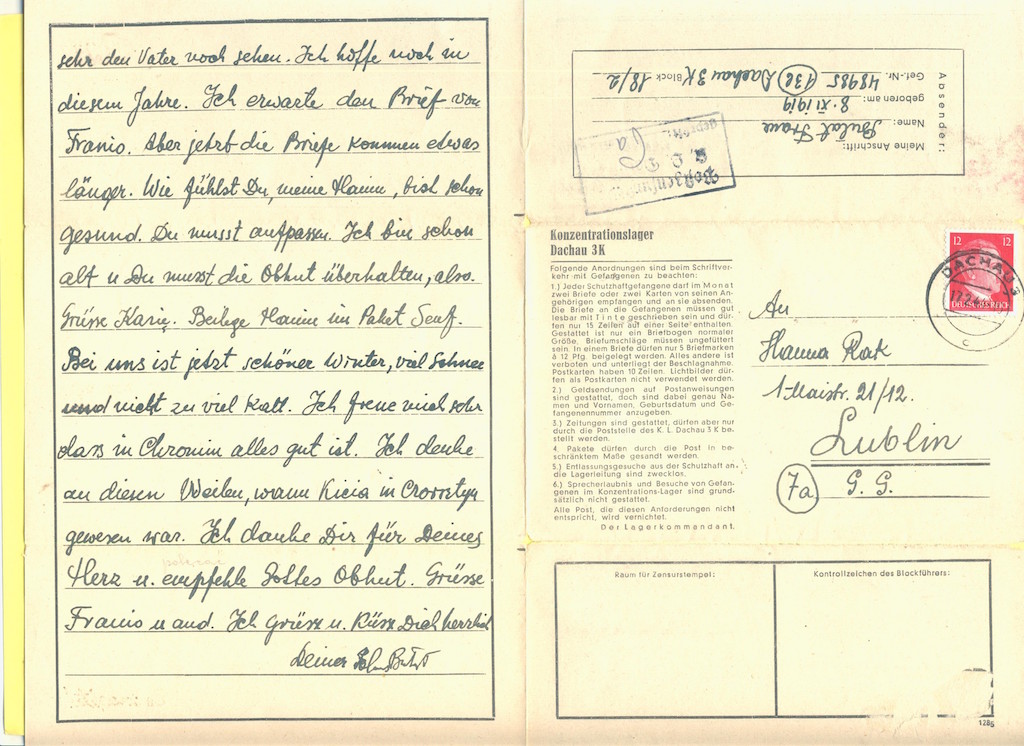 sehr den Vater noch sehen. Ich hoffe noch in
diesem Jahre. Ich erwarte den Brief von
Franio. Aber jetzt die Briefe kommen etwas
länger. Wie fühlst Du, meine Mamm, bist schon
gesund. Du musst aufpassen. Ich bin schon
alt u Du musst die Obhut überhalten, also.
Grüsse Kasie. Beilege Mamm im Paket Senf.
Bei uns ist jetzt schöner Winter, viel Schnee
und nicht zu viel Kalt. Ich freue mich sehr
dass in Chromin alles gut ist. Ich denke
an diesen Weilen, wann Kicia in
gewesen war. Ich danke Dir für Deines
Herz u. empfehle Gottes Obhut. Grüsse
Franio u and. Ich Grüsse u. Küsse Dich herzlich
Deiner
Absender:
Meine Anschrift:
Name: Franc
geboren am: 8. XI 1919
Gef.-Nr. 48985 (132) Dachau 3K Block 18/2
Postzensur
geprüft:
Konzentrationslager
Dachau 3K
Folgende Anordnungen sind beim Schriftver-
kehr mit Gefangenen zu beachten:
1.) Jeder Schutzhaftgefangene darf im Monat
zwei Briefe oder zwei Karten von seinen An-
gehörigen empfangen und an sie absenden.
Die Briefe an die Gefangenen müssen gut
lesbar mit Tinte geschrieben sein und dür-
fen nur 15 Zeilen auf einer Seite enthalten.
Gestattet ist nur ein Briefbogen normaler
Größe. Briefumschläge müssen ungefüttert
sein. In einem Briefe dürfen nur 5 Briefmarken
à 12 Pfg. beigelegt werden. Alles andere ist
verboten und unterliegt der Beschlagnahme.
Postkarten haben 10 Zeilen. Lichtbilder dür-
fen als Postkarten nicht verwendet werden.
2.) Geldsendungen auf Postanweisungen
sind gestattet, doch sind dabei genau Na-
men und Vornamen, Geburtsdatum und Ge-
fangenennummer anzugeben.
3.) Zeitungen sind gestattet, dürfen aber nur
durch die Poststelle des K. L. Dachau 3 K be-
stellt werden.
4. Pakete dürfen durch die Post in be-
schränktem Maße gesandt werden.
5.) Entlassungsgesuche aus der Schutzhaft an
die Lagerleitung sind zwecklos.
6.) Sprecherlaubnis und Besuche von Gefan-
genen im Konzentrations-Lager sind grund-
sätzlich nicht gestattet.
Alle Post, die diesen Anforderungen nicht
entspricht, wird vernichtet.
Der Lagerkommandant.
12 12
DEUTSCHES REICH
DACHAU 3
c
An
Hanna Rak
1-Maistr. 21/12.
Lublin
7a G. G.
Raum für Zensurstempel:
Kontrollzeichen des Blockführers:
1285